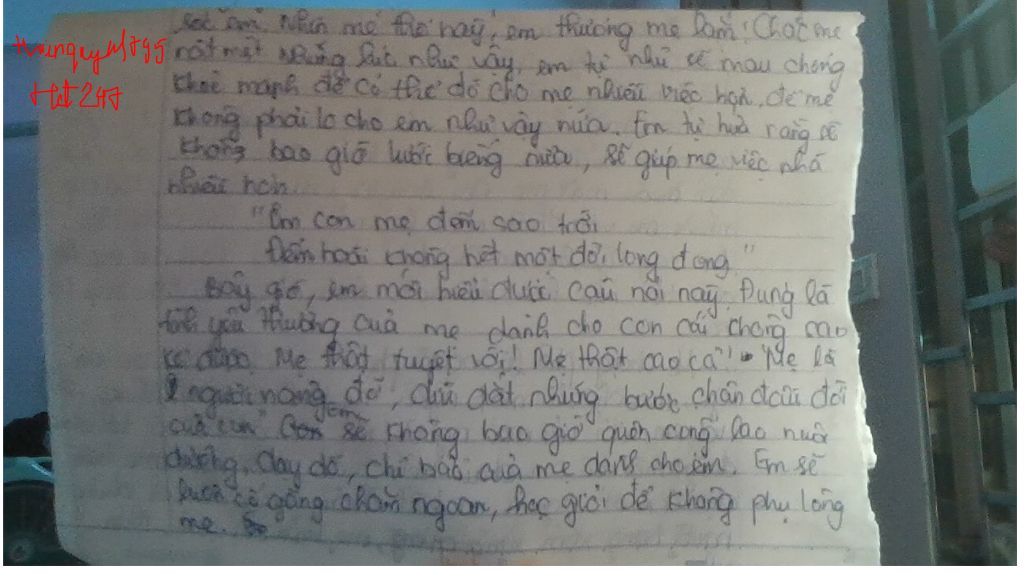 sóc em. Nhìn mẹ thế này, em thương mẹ lắm. Chắc mẹ
rất mệt những lúc như vậy, em tự nhủ sẽ mau chóng
khoẻ mạnh để có thể đỡ cho mẹ nhiều việc hơn, để mẹ
không phải lo cho em như vậy nữa. Em tự hứa rằng sẽ
không bao giờ lười biếng nữa, sẽ giúp mẹ việc nhà
nhiều hơn.
"Ơn con mẹ đếm sao trời
Đếm hoài không hết một đời long đong"
Bây giờ, em mới hiểu được câu nói này. Đúng là
tình yêu thương của mẹ dành cho con cái chẳng sao
kể được. Mẹ thật tuyệt vời! Mẹ thật cao cả"! Mẹ là
người nâng đỡ, dìu dắt những bước chân đầu đời
của em sẽ không bao giờ quên công lao nuôi
dưỡng, dạy dỗ, chỉ bảo của mẹ dành cho em. Em sẽ
luôn cố gắng chăm ngoan, học giỏi để không phụ lòng
mẹ.
Hết